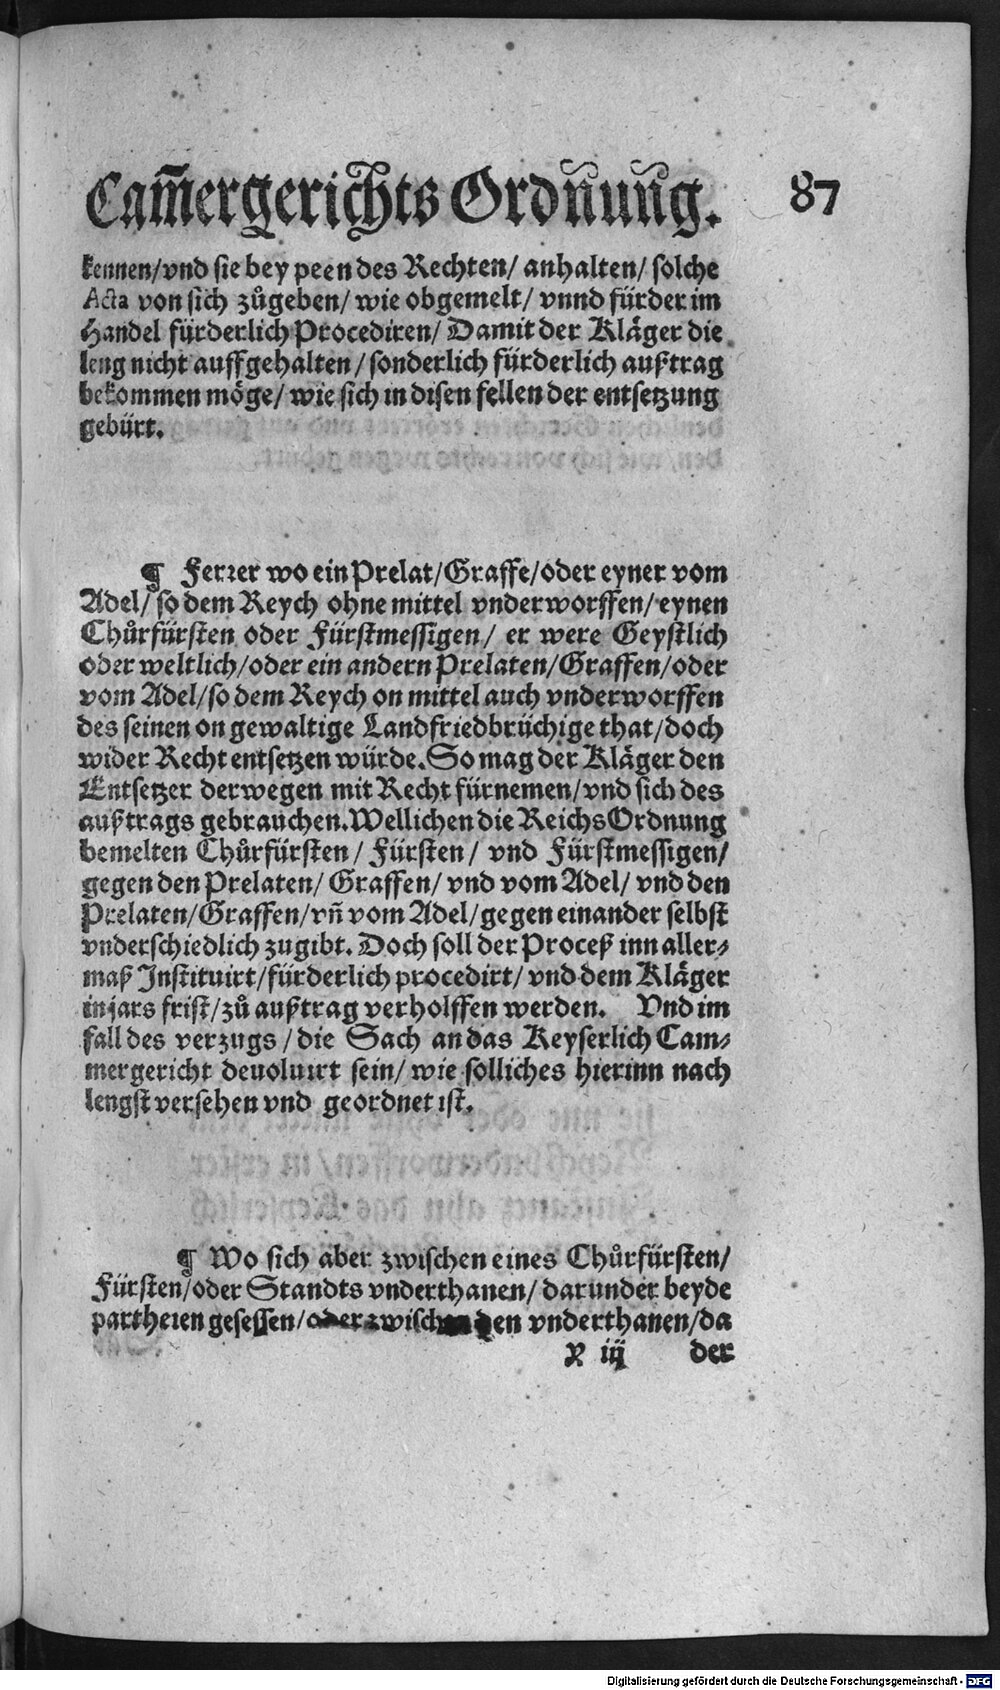 Cam̄ergerichts Ordnung. 87
kennen/vnd sie bey peen des Rechten/ anhalten/ solche
Acta von sich zůgeben/ wie obgemelt/ vnnd fürder im
Handel fürderlich Procediren/ Damit der Kläger die
leng nicht auffgehalten/ sonderlich fürderlich außtrag
bekommen möge/ wie sich in disen fellen der entsetzung
gebürt.
¶ Ferrer wo ein Prelat/Graffe/oder eyner vom
Adel/ so dem Reych ohne mittel vnderworffen/eynen
Chůrfürsten oder Fürstmessigen/ er were Geystlich
oder weltlich/oder ein andern Prelaten/Graffen/oder
vom Adel/so dem Reych on mittel auch vnderworffen
des seinen on gewaltige Landfriedbrüchige that/doch
wider Recht entsetzen würde. So mag der Kläger den
Entsetzer derwegen mit Recht fürnemen/vnd sich des
außtrags gebrauchen. Wellichen die Reichs Ordnung
bemelten Chůrfürsten/ Fürsten/ vnd Fürstmessigen/
gegen den Prelaten/ Graffen/ vnd vom Adel/ vnd den
Prelaten/Graffen/vñ vom Adel/gegen einander selbst
vnderschiedlich zugibt. Doch soll der Proceß inn aller⸗
maß Instituirt/fürderlich procedirt/ vnd dem Kläger
in jars frist/zů außtrag verholffen werden. Vnd im
fall des verzugs/die Sach an das Keyserlich Cam⸗
mergericht deuoluirt sein/ wie solliches hierinn nach
lengst versehen vnd geordnet ist.
¶ Wo sich aber zwischen eines Chůrfürsten/
Fürsten/oder Standts vnderthanen/ darunder beyde
partheien gesessen/oder zwischen den vnderthanen/da
x iij der
Digitalisierung gefördert durch die Deutsche Forschungsgemeinschaft - DFG